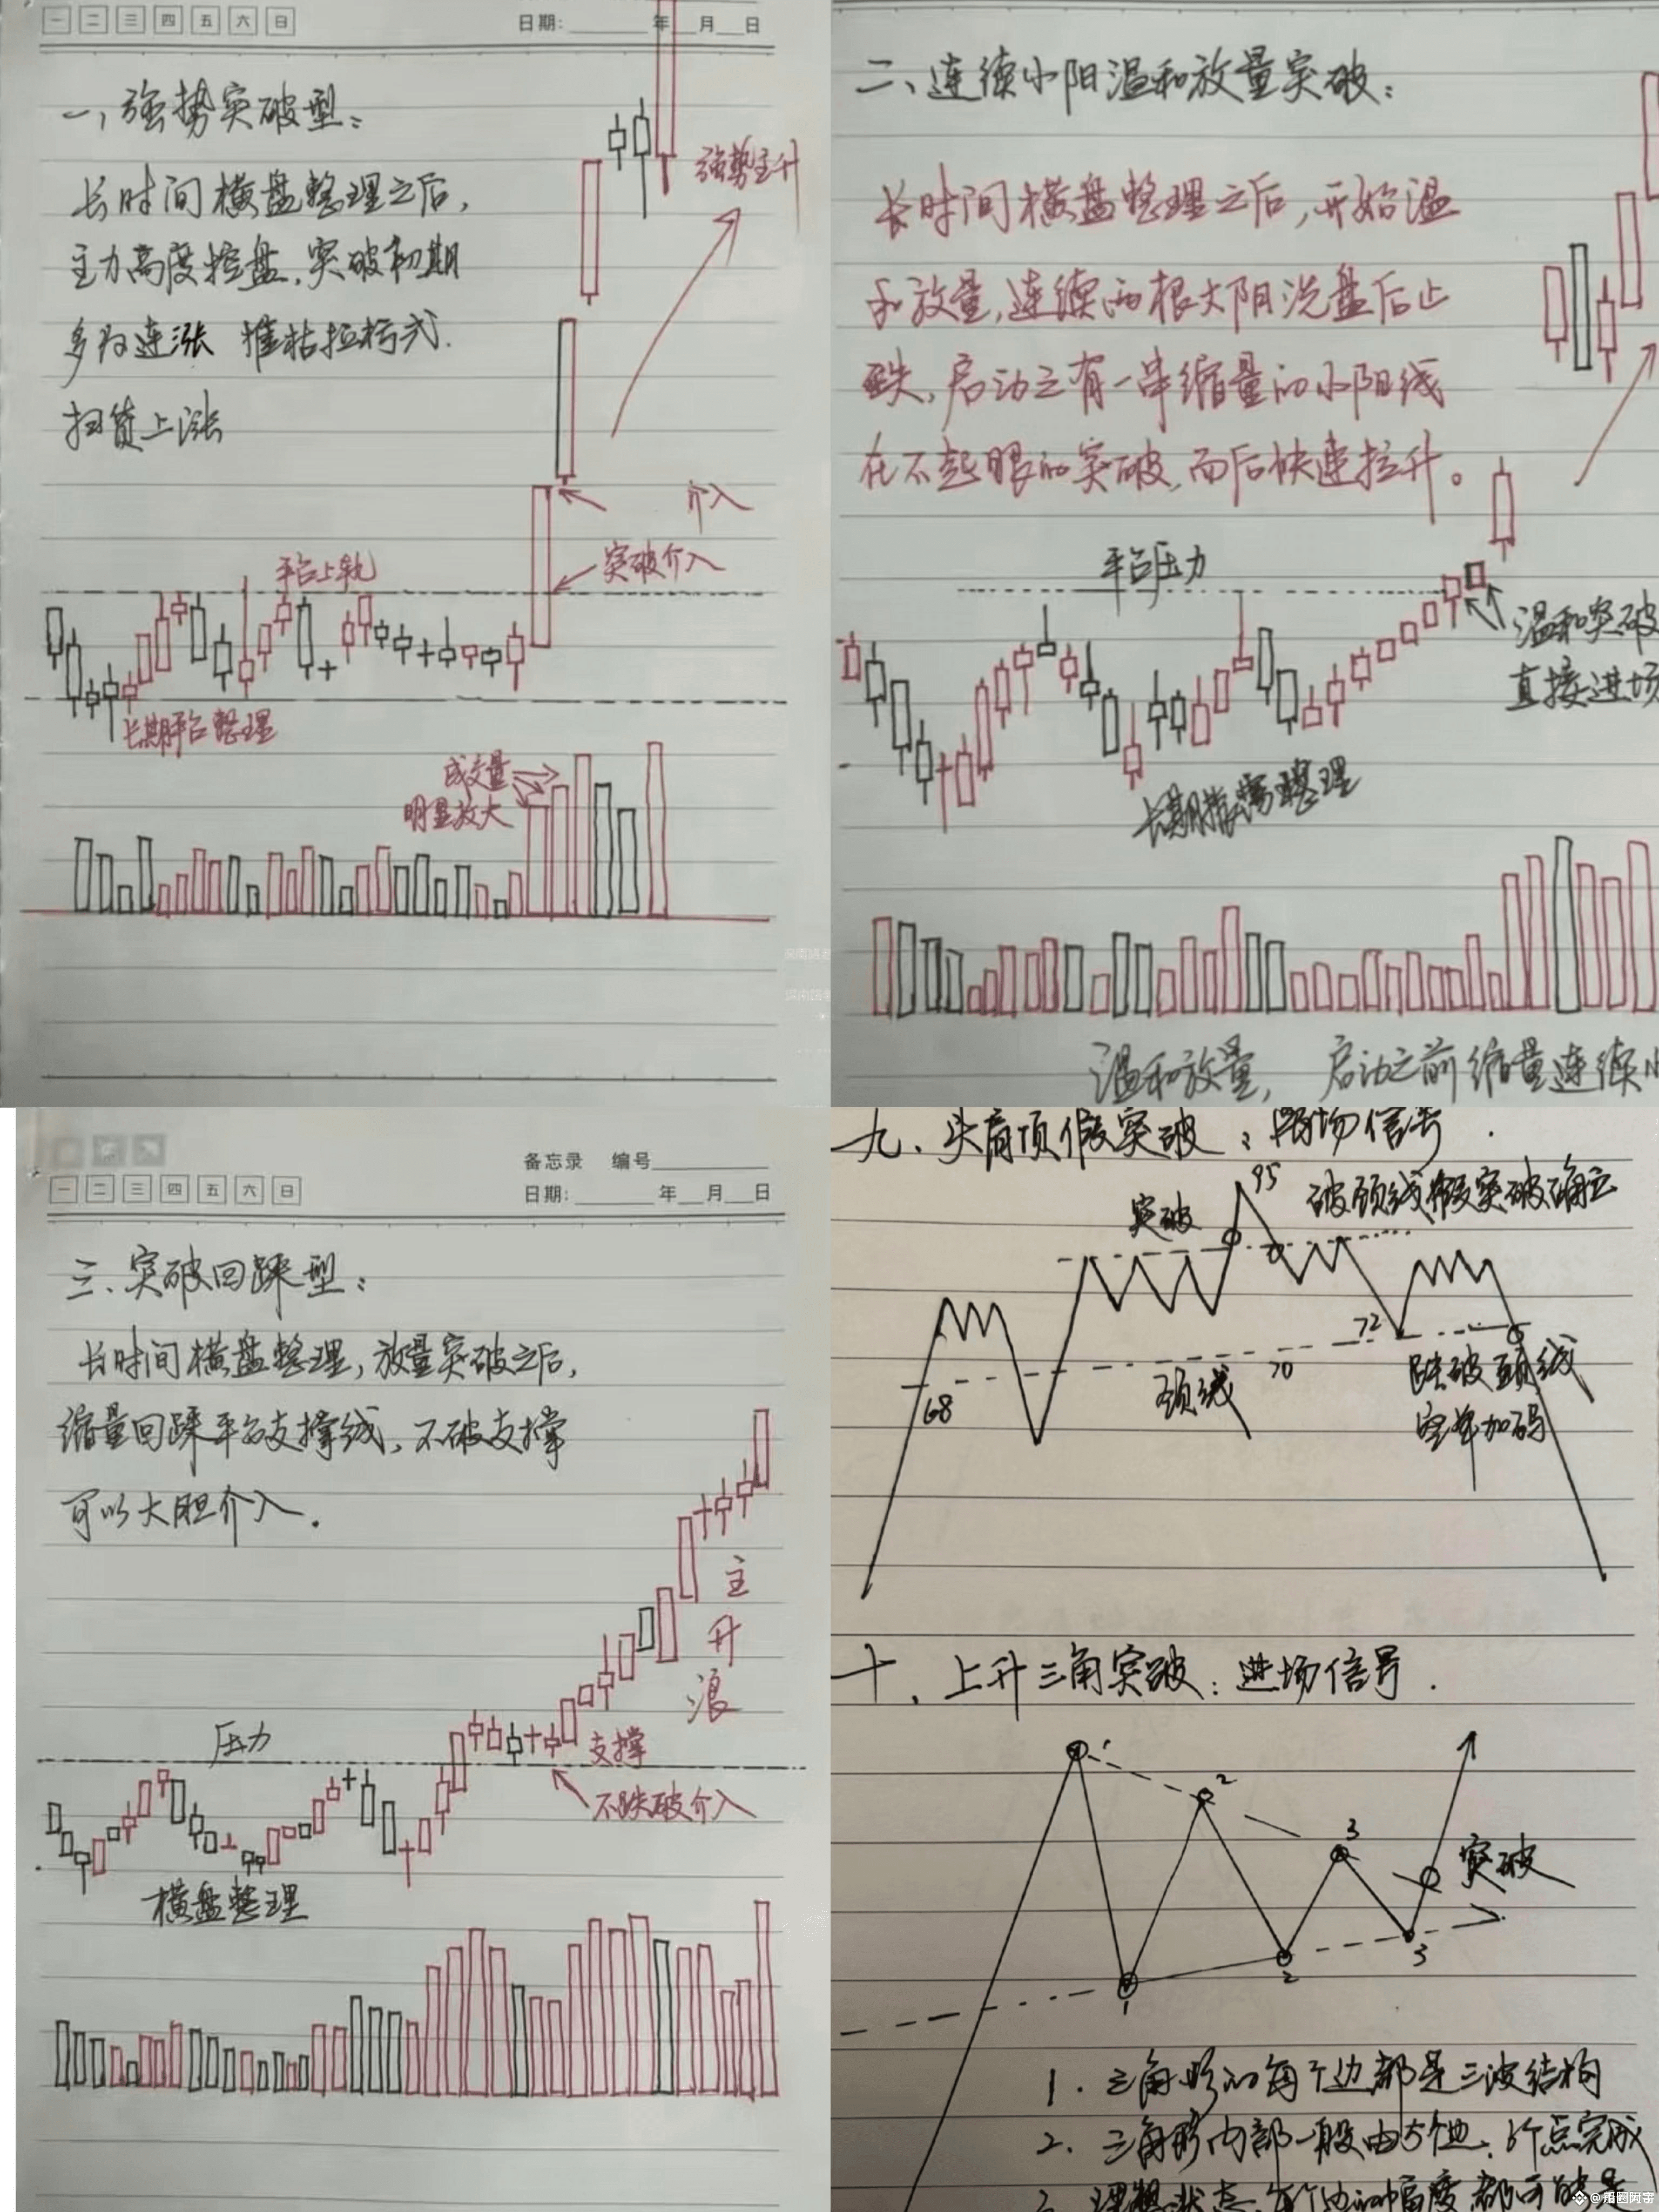 一 二 三 四 五 六 日
日期: 年 月 日
一、强势突破型:
长时间横盘整理之后,
主力高度控盘.突破初期
多为连涨 摧枯拉朽式.
扫货上涨
强势主升
介入
突破介入
平台上轨
长期平台整理
成交量
明显放大
二、连续小阳温和放量突破:
长时间横盘整理之后,开始温
和放量,连续两根大阴洗盘后止
跌,启动之有一串缩量的小阳线
在不起眼的突破,而后快速拉升。
平台压力
温和突破
直接进场
长期横盘整理
温和放量, 启动之前缩量连续小
备忘录 编号
一 二 三 四 五 六 日
日期: 年 月 日
三、突破回踩型:
长时间横盘整理,放量突破之后,
缩量回踩平台支撑线,不破支撑
可以大胆介入.
主
升
浪
压力
支撑
不跌破介入
横盘整理
九、头肩顶假突破:离场信号.
95
突破
破颈线假突破确立
72
70
68
颈线
跌破颈线
空单加码
十、上升三角突破:进场信号.
1
2
3
突破
1
2
3
1. 三角形的每个边都是三波结构
2. 三角形内部一般由5个边、6个点完成
3. 理想状态,每个边的幅度都可能是
@币圈阿宇